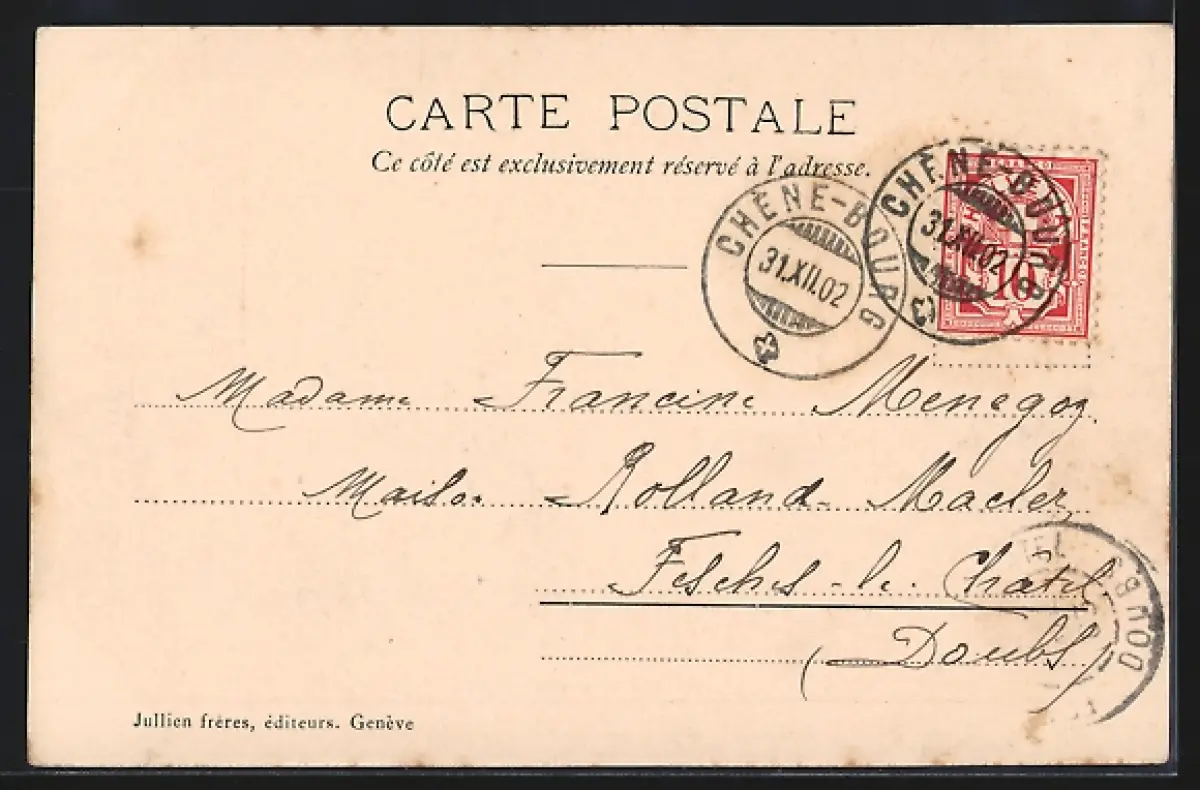 CARTE POSTALE
Ce côté est exclusivement réservé à l'adresse.
CHÊNE-BOURG
31.XII.02
CHÊNE-BOURG
31.XII.02
FRANCO
10
Madame Francine Menegoz
Maison Rolland Macler
Fesches-le-Châtel
(Doubs)
DOUBS
Jullien frères, éditeurs. Genève